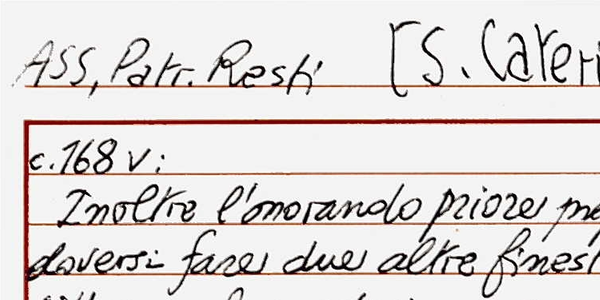 ASS, Patr. Resti [S. Cateri
c. 168 v:
Inoltre l'onorando priore
doversi fare due altre finest